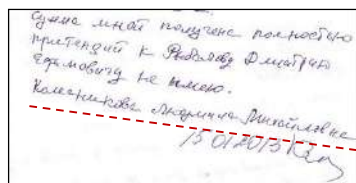 Сумма мной получена полностью
претензий к Яковлеву Дмитрию
Ефимовичу не имею.
Колесникова Людмила Михайловна
15 01 2015